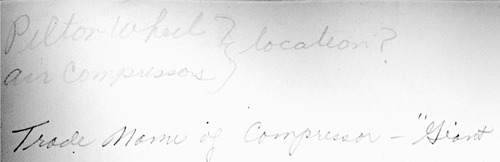 Pelton Wheel } location?
air Compressors }
Trade Name of Compressor - "Giant